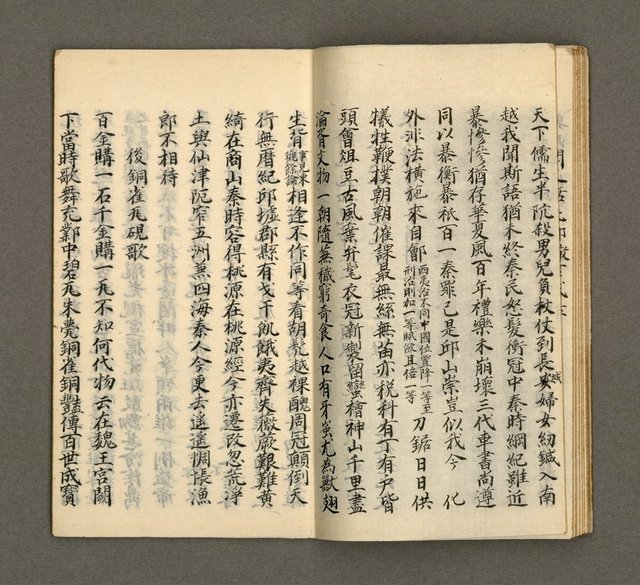 天下儒生半阬殺男兒負杖仗到長城婦女紉鍼入南
越我聞斯語猶未終秦民怒髮衝冠中秦時綱紀雖近
暴慘慘猶存華夏風百年禮樂未崩壞三代車書尚遵
同以暴衡暴祇百一秦罪已是邱山崇豈似我今 化
外非法橫施來自鄶西夷治不同中國位置降一等至刑治則加一等賦斂且倍一等刀鋸日日供
犧牲鞭撲朝朝催課最無絲無苗亦稅科有丁有戶皆
頭會俎豆古風棄弁髦衣冠新製留蠻檜神山千里盡
淪胥文物一朝隨蕪穢窮奇食人口有牙蚩尤為獸翅
生背相逢不作同等看胡髡越裸醜周冠顛倒天
行無曆紀邱墟郡縣有戈干飢餓夷齊失薇蕨艱難黃
綺在商山秦時容得桃源在桃源經今亦遷改忽荒浮
土與仙津阨窄五洲兼四海秦人今更去遙遙惆悵漁
郎不相待
後銅雀瓦硯歌
百金購一石千金購一瓦不知何代物云在魏王宮闕
下當時歌舞充鄴中碧瓦朱甍銅雀銅豔傳百世成寶